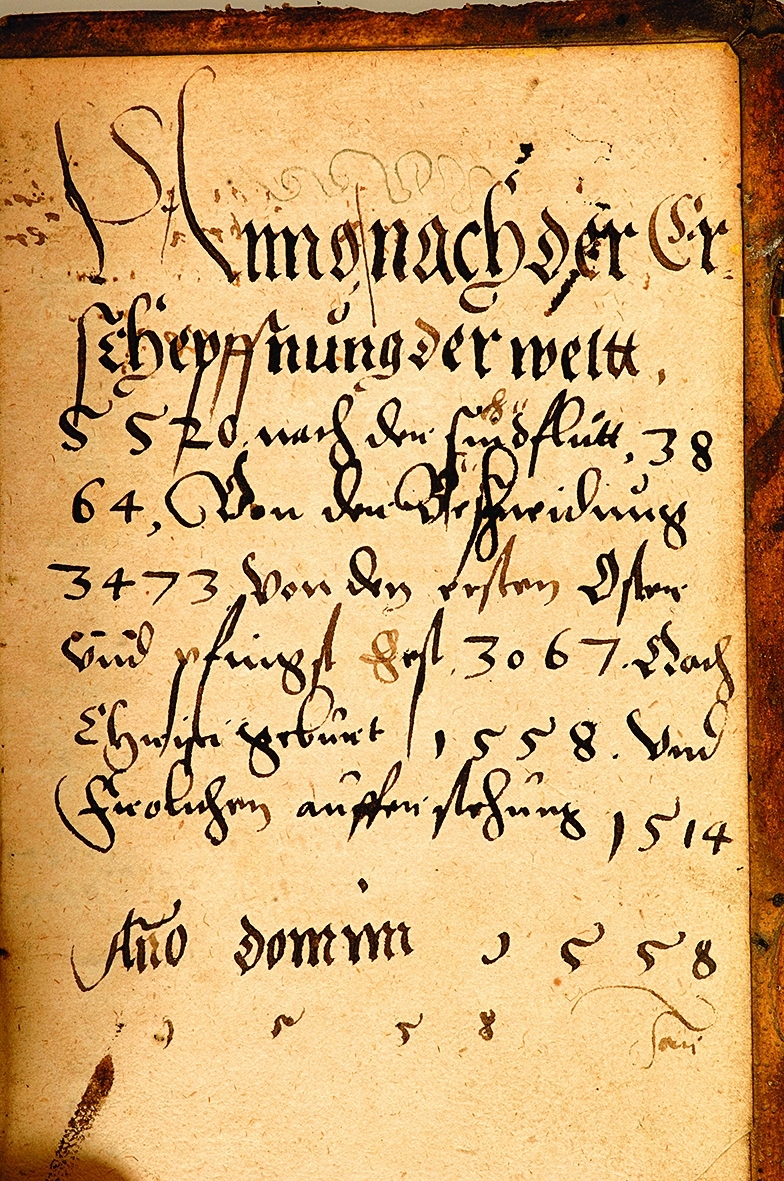 Anno nach der Er
schepffnung der weltt,
5520. nach der sindflutt, 38
64, Von der Beschneidung
3473 Von den ersten Ostern
Vnd pfingst fest 3067. Nach
Christi geburt 1558. Vnd
Frolichen aufferstehung 1514
Año domini 1558
1558